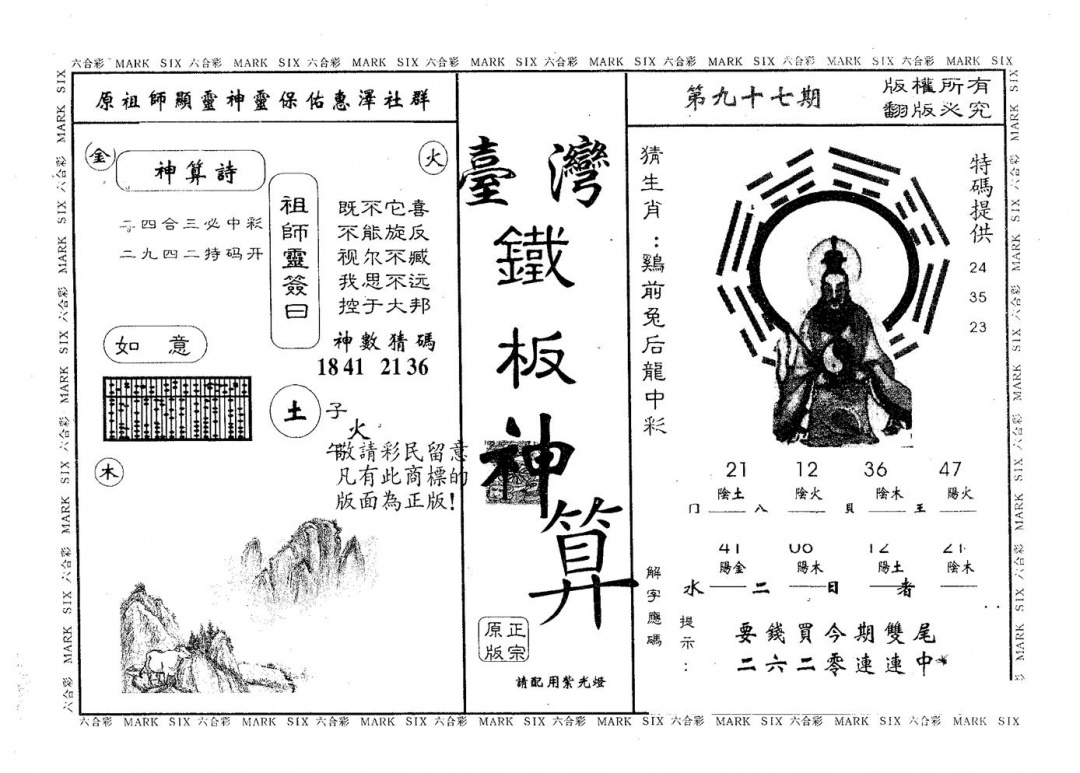 六合彩 MARK SIX 六合彩 MARK SIX 六合彩 MARK SIX 六合彩 MARK SIX 六合彩 MARK SIX 六合彩 MARK SIX 六合彩 MARK SIX 六合彩 MARK SIX
原祖師顯靈神靈保佑惠澤社群
金
神算詩
火
二四合三必中彩
二九四二特码开
祖師靈簽曰
既不它喜
不能旋反
视尔不臧
我思不远
控于大邦
神數猜碼
18 41 21 36
如意
土
子
火
午
木
敬請彩民留意
凡有此商標的
版面為正版!
臺灣
鐵
板
神
算
正宗
原版
請配用紫光燈
第九十七期
版權所有
翻版必究
猜生肖:鷄前兔后龍中彩
特碼提供
24
35
23
21 12 36 47
陰土 陰火 陰木 陽火
门 八 貝 王
41 06 12 21
陽金 陽木 陽土 陰木
水 二 日 者
解字應碼
提示:
要錢買今期雙尾
二六二零連連中
六合彩 MARK SIX 六合彩 MARK SIX 六合彩 MARK SIX 六合彩 MARK SIX 六合彩 MARK SIX 六合彩 MARK SIX 六合彩 MARK SIX 六合彩 MARK SIX